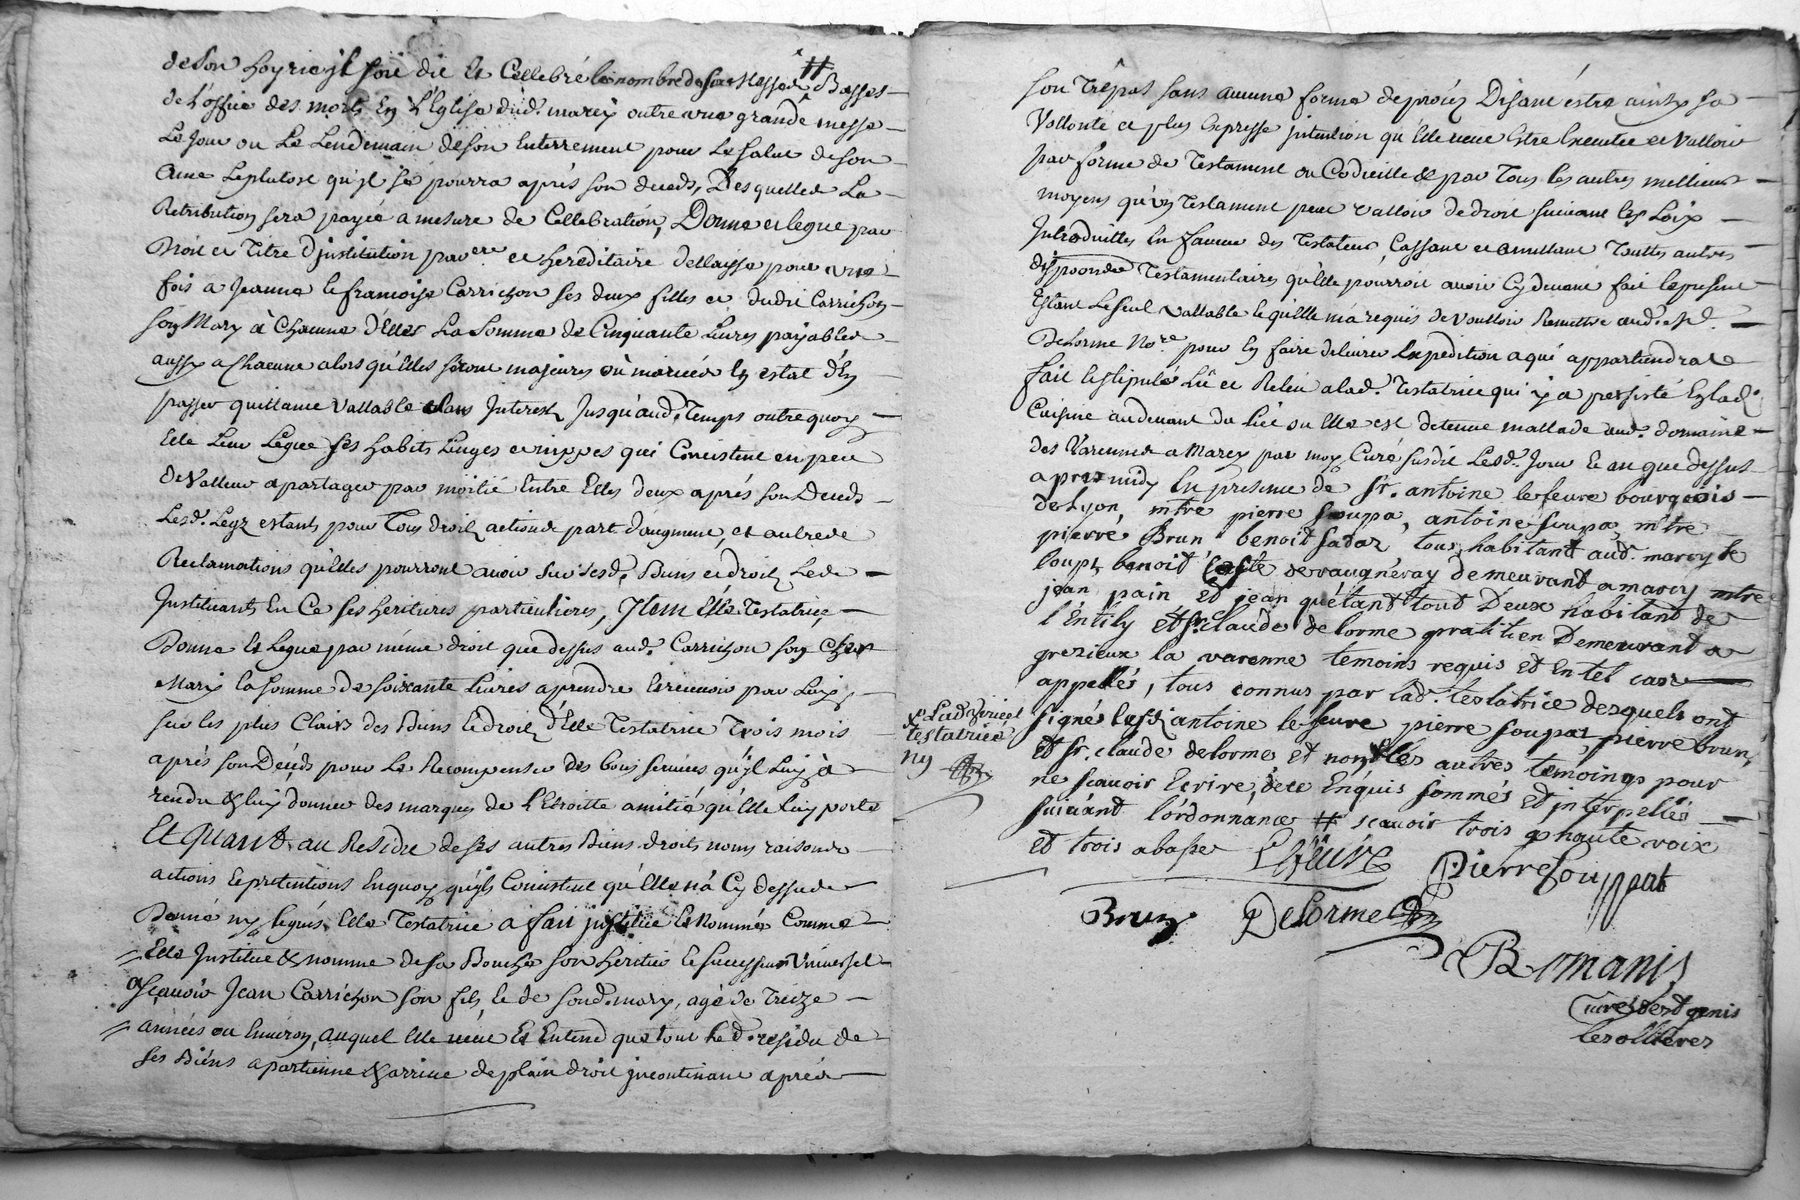 de son hoyrie jl soit dit et Cellebré le nombre de six Messes # Basses
de l'office des morts En l'Eglise dud. marcy outre une grande messe
Le jour ou Le Lendemain de son Enterrement pour Le salut de son
ame Le plutost qu'jl se pourra aprés son deceds, Desquelles La
Retribution sera payée a mesure de Cellebration, Donne et legue par
Droit et Titre d'jnstitution par.ere et hereditaire dellaisse pour une
fois a Jeanne et francoise Carrichon ses deux filles et dudit Carrichon
son Mary à Chacune d'Elles La Somme de Cinquante Livres payables
aussy a Chacune alors qu'elles seront majeures où mariées En estat d'En
passer quittance vallable sans Interest Jusqu'aud. Temps outre quoy
Elle Leur Legue ses habits Linges et nippes qui Concistent en peu
de Valleur a partager par moitié Entre Elles deux aprés son Deceds
Lesd. Legz estants pour Tous droits actions part d'augment, et autres
Reclamations qu'elles pourront avoir sur sesd. Biens et droits Les
Instituants En Ce ses heritieres particulieres, Item Elle Testatrice
Donne et Legue par méme droit que dessus aud. Carrichon son Cher
Mary la somme de soixante livres a prendre et recevoir par Luy
sur les plus Clairs des Biens et droits d'Elle Testatrice Trois mois
aprés son Deceds pour Le Recompenser des bons services qu'jl Luy à
rendu & luy donner des marques de l'Etroitte amitié qu'Elle luy porte
Et Quant au Residu de ses autres Biens droits noms raisons
actions et pretentions En quoy qu'jls Concistent qu'Elle n'à Cy dessus
Donné ny legués Elle Testatrice a fait jnstitué et Nommé Comme
Elle Institue & nomme de sa Bouche son heritier et successeur Universel
a scavoir Jean Carrichon son fils et de sond. mary, agé de Treize
années ou Environ, auquel Elle veut Et Entend que tout Led. residu de
ses Biéns apartienne & arrive de plain droit jncontinant aprés
son Trépas sans aucune forme de procés Disant éstre ainsy sa
Vollonté et plus Expresse jntention qu'Elle veut Estre Executée et Valloir
par forme de Testament ou Codicille & par Tous les autres meilleurs
moyens qu'un Testament peut valloir de droit suivant les Loix
Introduittes En faveur des Testateurs, Cassant et annullant Touttes autres
dispoons Testamentaires qu'elle pourroit avoir Cy devant fait le present
Estant Le seul vallable et qu'elle m'a requis de voulloir Remettre aud. Sr.
Delorme No.re pour En faire delivrer Expedition a qui appartiendra
fait et stipulé Lû et Releu a lad. Testatrice qui y a persisté En lad.
Cuisine au devant du lict ou Elle est detenue mallade aud. domaine
des Varennes a Marcy par moy Curé susdit Lesd. Jour et an que dessus
apres midy En presence de Sr. antoine lefeure bourgeois
de Lyon, mtre pierre soupa, antoine soupa, mtre
pierre Brun benoit sadar, tous habitant aud. marcy le
loup, benoit Coste de vaugneray demeurant a marcy mtre
jean pain Et jean quétant tout Deux habitant de
l'Entily et Sr. claude delorme pratitien Demeurant a
grezieux la varenne temoins requis Et En tel cas
appellés, tous connus par lad. testatrice desquels ont
signés lesd. antoine lefeure pierre soupat, pierre brun,
et Sr. claude delorme, Et non les autres temoings pour
ne scavoir Ecrire, de ce Enquis sommés Et interpellés
suivant l'ordonnance # scavoir trois a haute voix
et trois a basse
x Lad.
testatrice
ny
Lefeuvre
Pierre Souppat
Brun
Delorme
Romanis
Curé de st genis
les ollieres